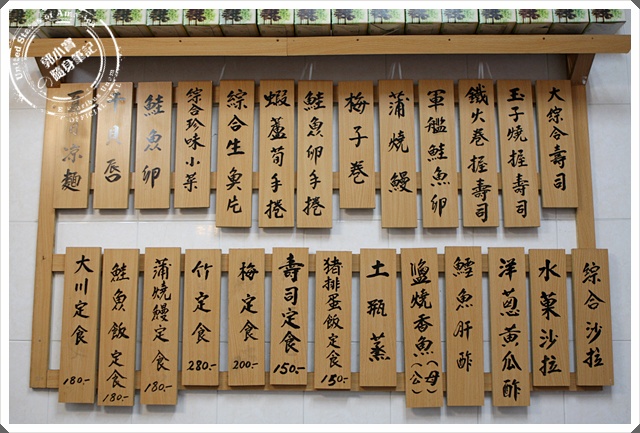 大綜合壽司
玉子燒握壽司
鐵火卷握壽司
軍艦鮭魚卵
蒲燒鰻
梅子卷
鮭魚卵手捲
蝦蘆筍手捲
綜合生魚片
綜合珍味小菜
鮭魚卵
貝唇
涼麵
綜合沙拉
水菓沙拉
洋蔥黃瓜酢
鱈魚肝酢
鹽燒香魚(公)(母)
土瓶蒸
猪排蛋飯定食 150.-
壽司定食 150.-
梅定食 200.-
竹定食 280.-
蒲燒鰻定食 180.-
鮭魚飯定食 180.-
大川定食 180.-
郭小寶
隨身筆記